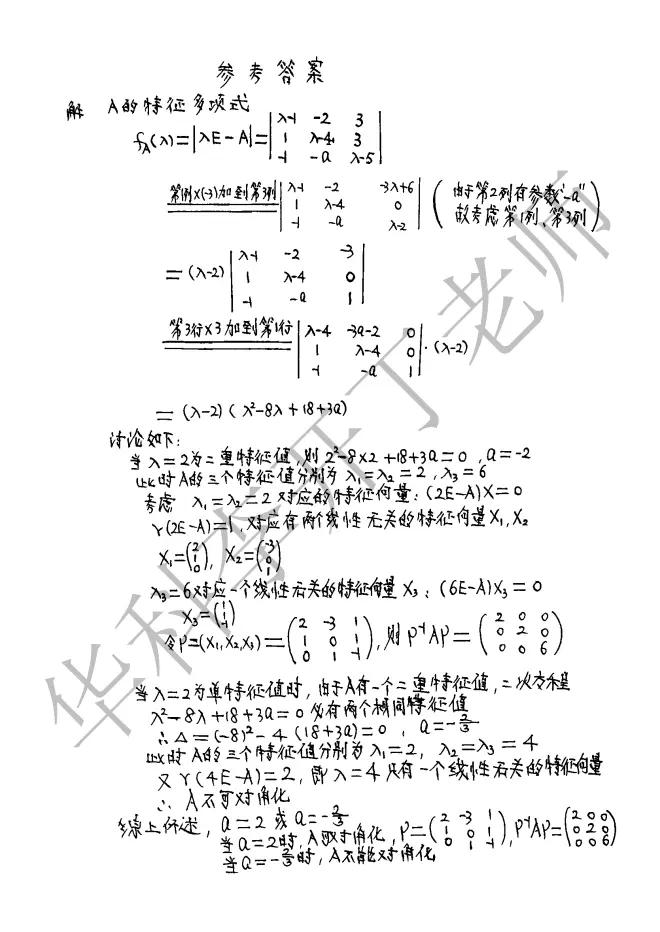 参考答案
解 A的特征多项式
f_A(λ)=|λE-A|=|λ-1 -2 3; 1 λ-4 3; -1 -a λ-5|
第1列×(-3)加到第3列 |λ-1 -2 -3λ+6; 1 λ-4 0; -1 -a λ-2| (由于第2列有参数"-a" 故考虑第1列、第3列)
=(λ-2)|λ-1 -2 -3; 1 λ-4 0; -1 -a 1|
第3行×3加到第1行 |λ-4 -3a-2 0; 1 λ-4 0; -1 -a 1|·(λ-2)
=(λ-2)(λ²-8λ+18+3a)
讨论如下:
当λ=2为二重特征值,则2²-8×2+18+3a=0,a=-2
此时A的三个特征值分别为λ₁=λ₂=2,λ₃=6
考虑λ₁=λ₂=2对应的特征向量:(2E-A)X=0
r(2E-A)=1,对应有两个线性无关的特征向量X₁,X₂
X₁=(2 1 0), X₂=(-3 0 1)
λ₃=6对应一个线性无关的特征向量X₃:(6E-A)X₃=0
X₃=(1 1 -1)
令P=(X₁,X₂,X₃)=(2 -3 1; 1 0 1; 0 1 -1),则P⁻¹AP=(2 0 0; 0 2 0; 0 0 6)
当λ=2为单特征值时,由于A有一个二重特征值,二次方程
λ²-8λ+18+3a=0必有两个相同特征值
∴Δ=(-8)²-4(18+3a)=0,a=-2/3
此时A的三个特征值分别为λ₁=2,λ₂=λ₃=4
又r(4E-A)=2,即λ=4只有一个线性无关的特征向量
∴A不可对角化
综上所述,a=2或a=-2/3
当a=2时,A可对角化,P=(2 -3 1; 1 0 1; 0 1 -1),P⁻¹AP=(2 0 0; 0 2 0; 0 0 6)
当a=-2/3时,A不能对角化
华科李开丁老师